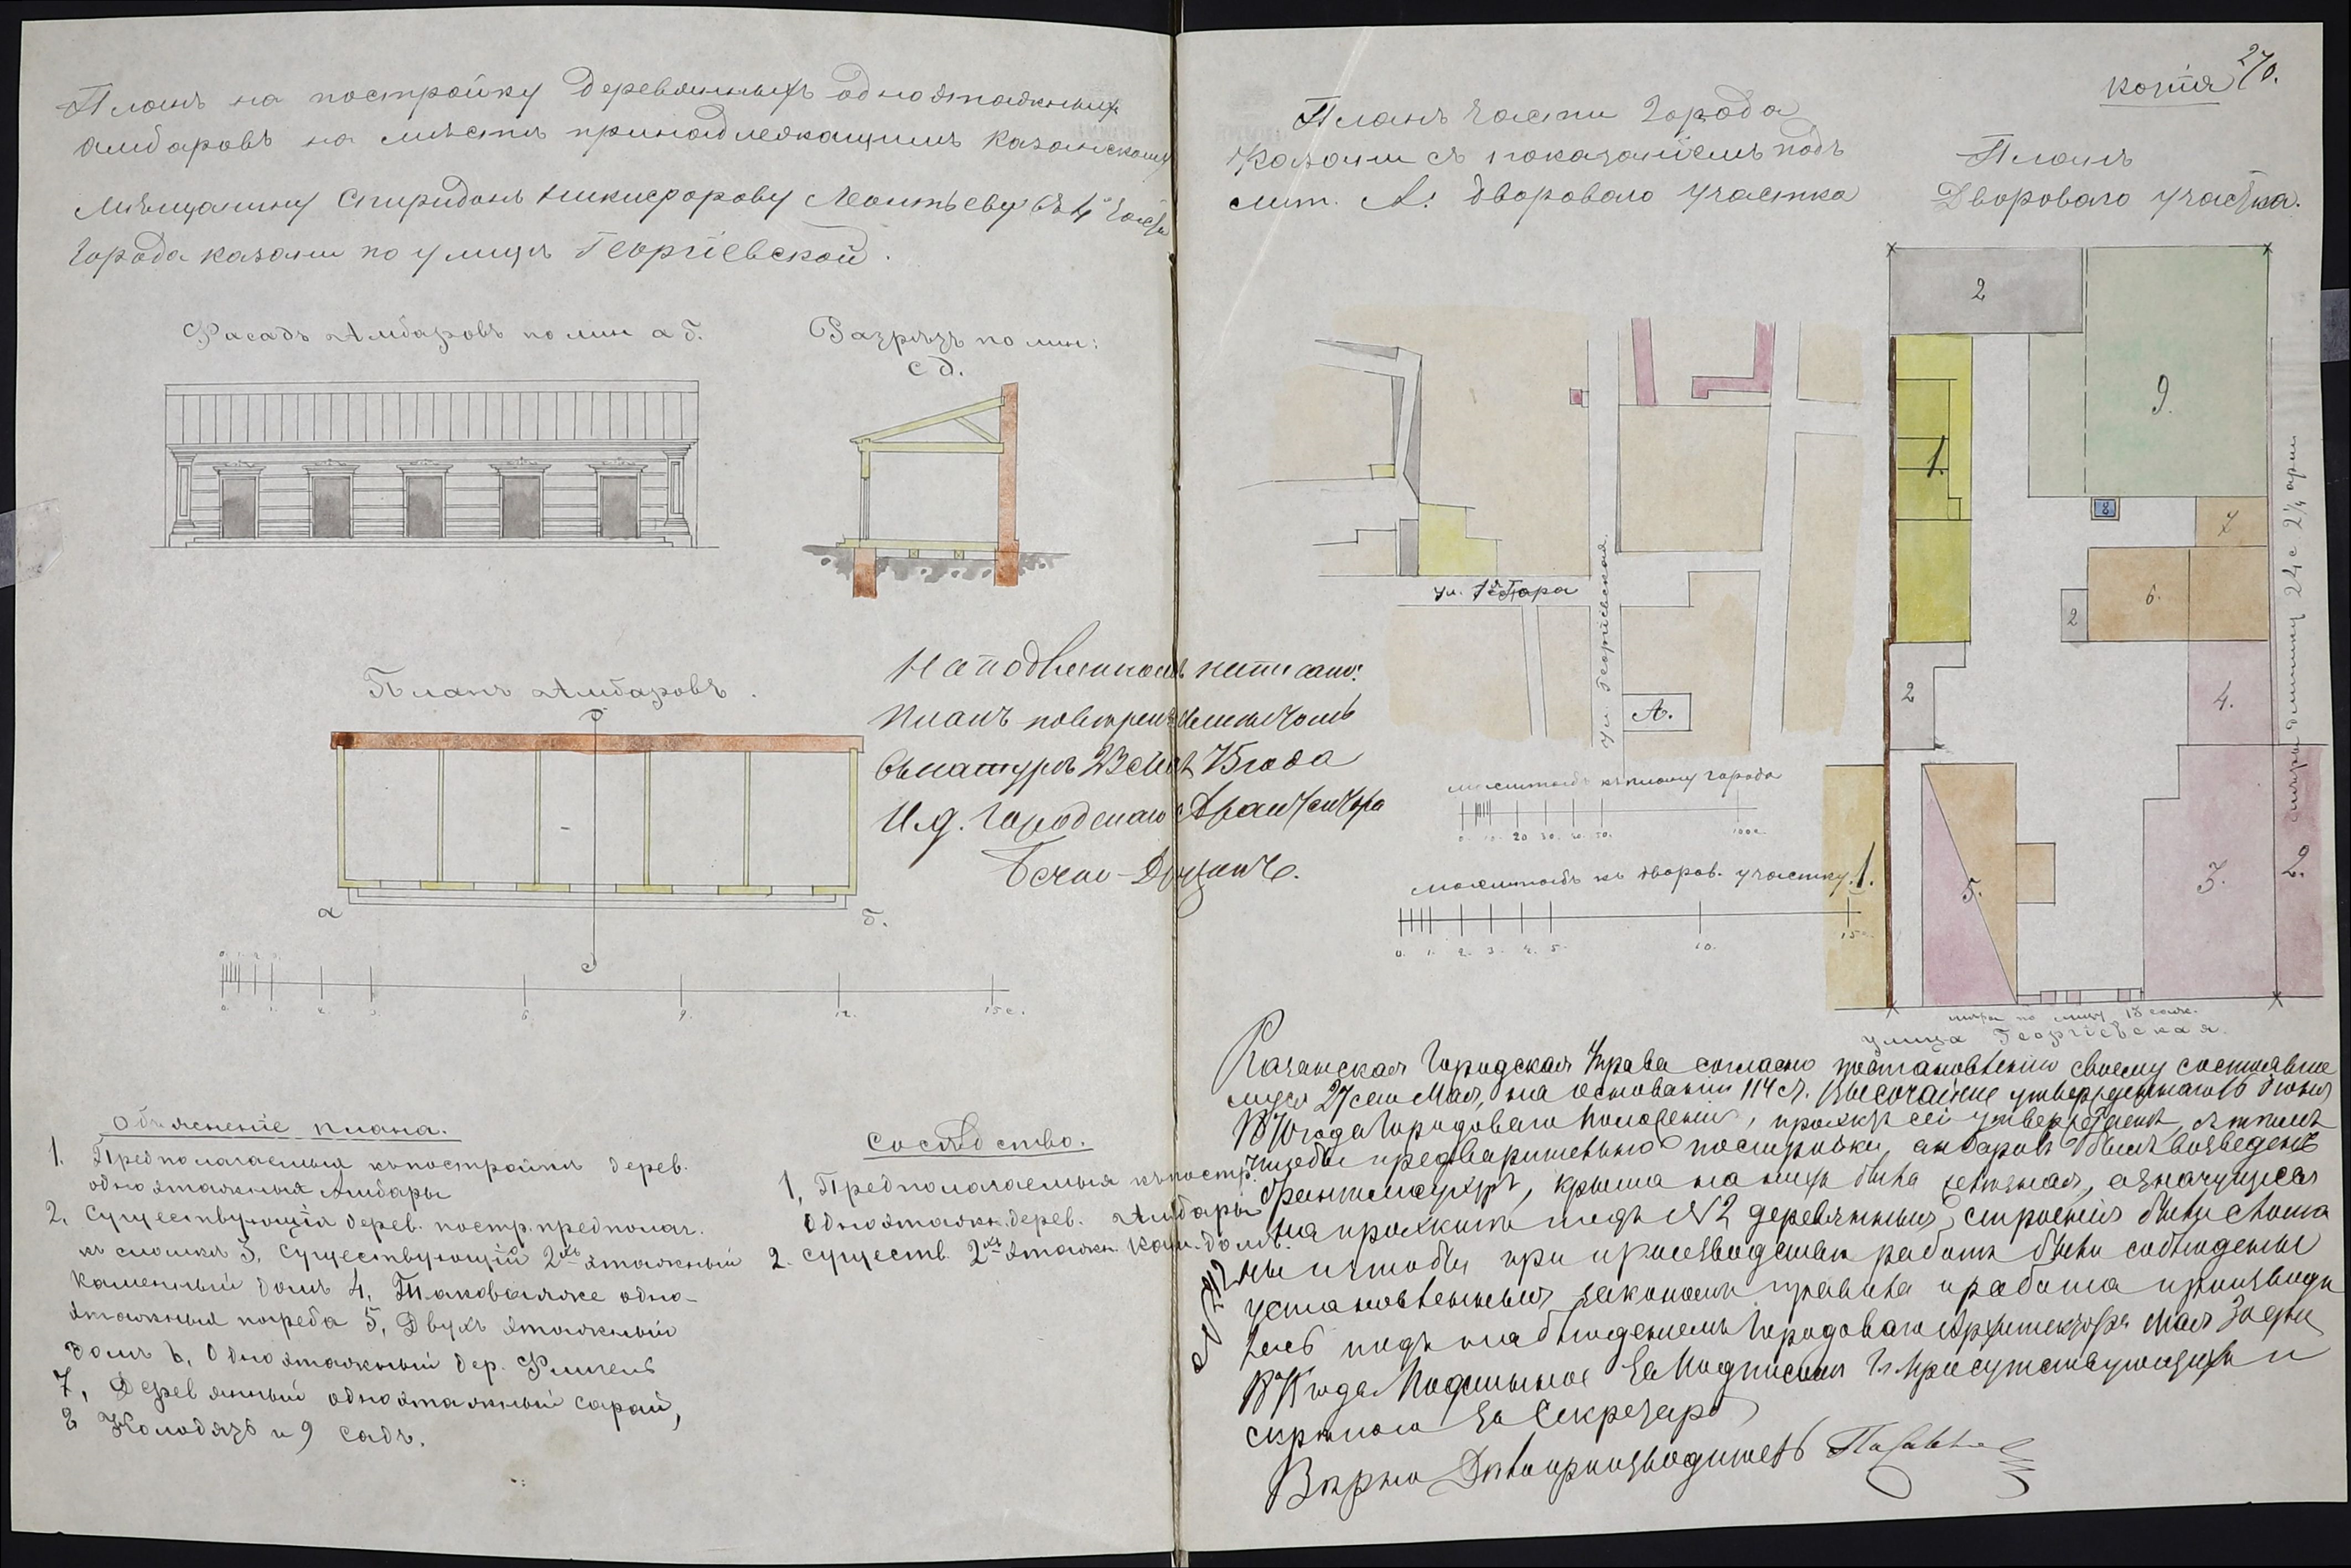 Планъ на постройку деревянныхъ одноэтажныхъ
амбаровъ на мѣстѣ принадлежащимъ Казанскому
мѣщанину Спиридонъ Никифорову Леонтьеву въ 4й части
города казани по улицѣ Георгіевской.
Фасадъ Амбаровъ по лин а б.
Разрѣзъ по лин:
с д.
Планъ Амбаровъ.
а
б.
с
0. 1. 2. 3. 6. 9. 12. 15 с.
На подлинномъ написано:
Планъ повѣренъ
Въ натурѣ 23 Мая 75 года
И.д. Городскаго Архитектора
Объясненіе плана.
1. Предполагаемыя къ постройкѣ дерев.
одноэтажныя Амбары
2. Существующія дерев. постр. предполаг.
къ сломкѣ 3, Существующій 2хъ этажный
каменный домъ 4, Таковыяже одно-
этажныя погреба 5, Двухъ этажный
домъ 6, Одноэтажный дер. Флигель
7, Деревянный одноэтажный сарай,
8 Колодязь и 9 Садъ.
Сосѣдство.
1, Предполагаемыя къ постр.
одноэтажн. дерев. Амбары
2. существ. 2хъ этажн. кам. домъ.
копія
270.
Планъ части города
Казани съ показаніемъ подъ
лит. А. двороваго участка
Планъ
Двороваго участка.
ул. 1я Гора
ул. Георгіевская.
А.
масштабъ къ плану города
0. 10. 20 30. 40. 50. 100 с.
масштабъ къ дворов. участку
0. 1. 2. 3. 4. 5. 10. 15 с.
2
9.
1.
8
7
6.
2
2
4.
5.
3.
1.
2.
мѣры въ длинну 24 с 2¼ арш
мѣры по улицѣ 13 саж.
улица Георгіевская.
Казанская Городская Управа согласно постановленію своему состоявше
муся 27 сего Мая, на основаніи 114 ст. Высочайше утвержденнаго 16 Іюня
1870 года Городоваго Положенія, проэктъ сей утверждаетъ, съ тѣмъ
чтобы предварительно постройки анбаровъ былъ возведенъ
брантмауеръ, крыша на нихъ была желѣзная, а значущіяся
на проэктѣ подъ №2 деревянныя строенія были слома
ны и чтобы при производствѣ работъ были соблюдены
установленныя закономъ правила и работа производи
лась подъ наблюденіемъ Городоваго Архитектора Мая 30 дня
1875 года Подлинное за Подписомъ Гг Присутствующихъ и
скрѣпою за Секретаря
Вѣрно Дѣлопроизводитель